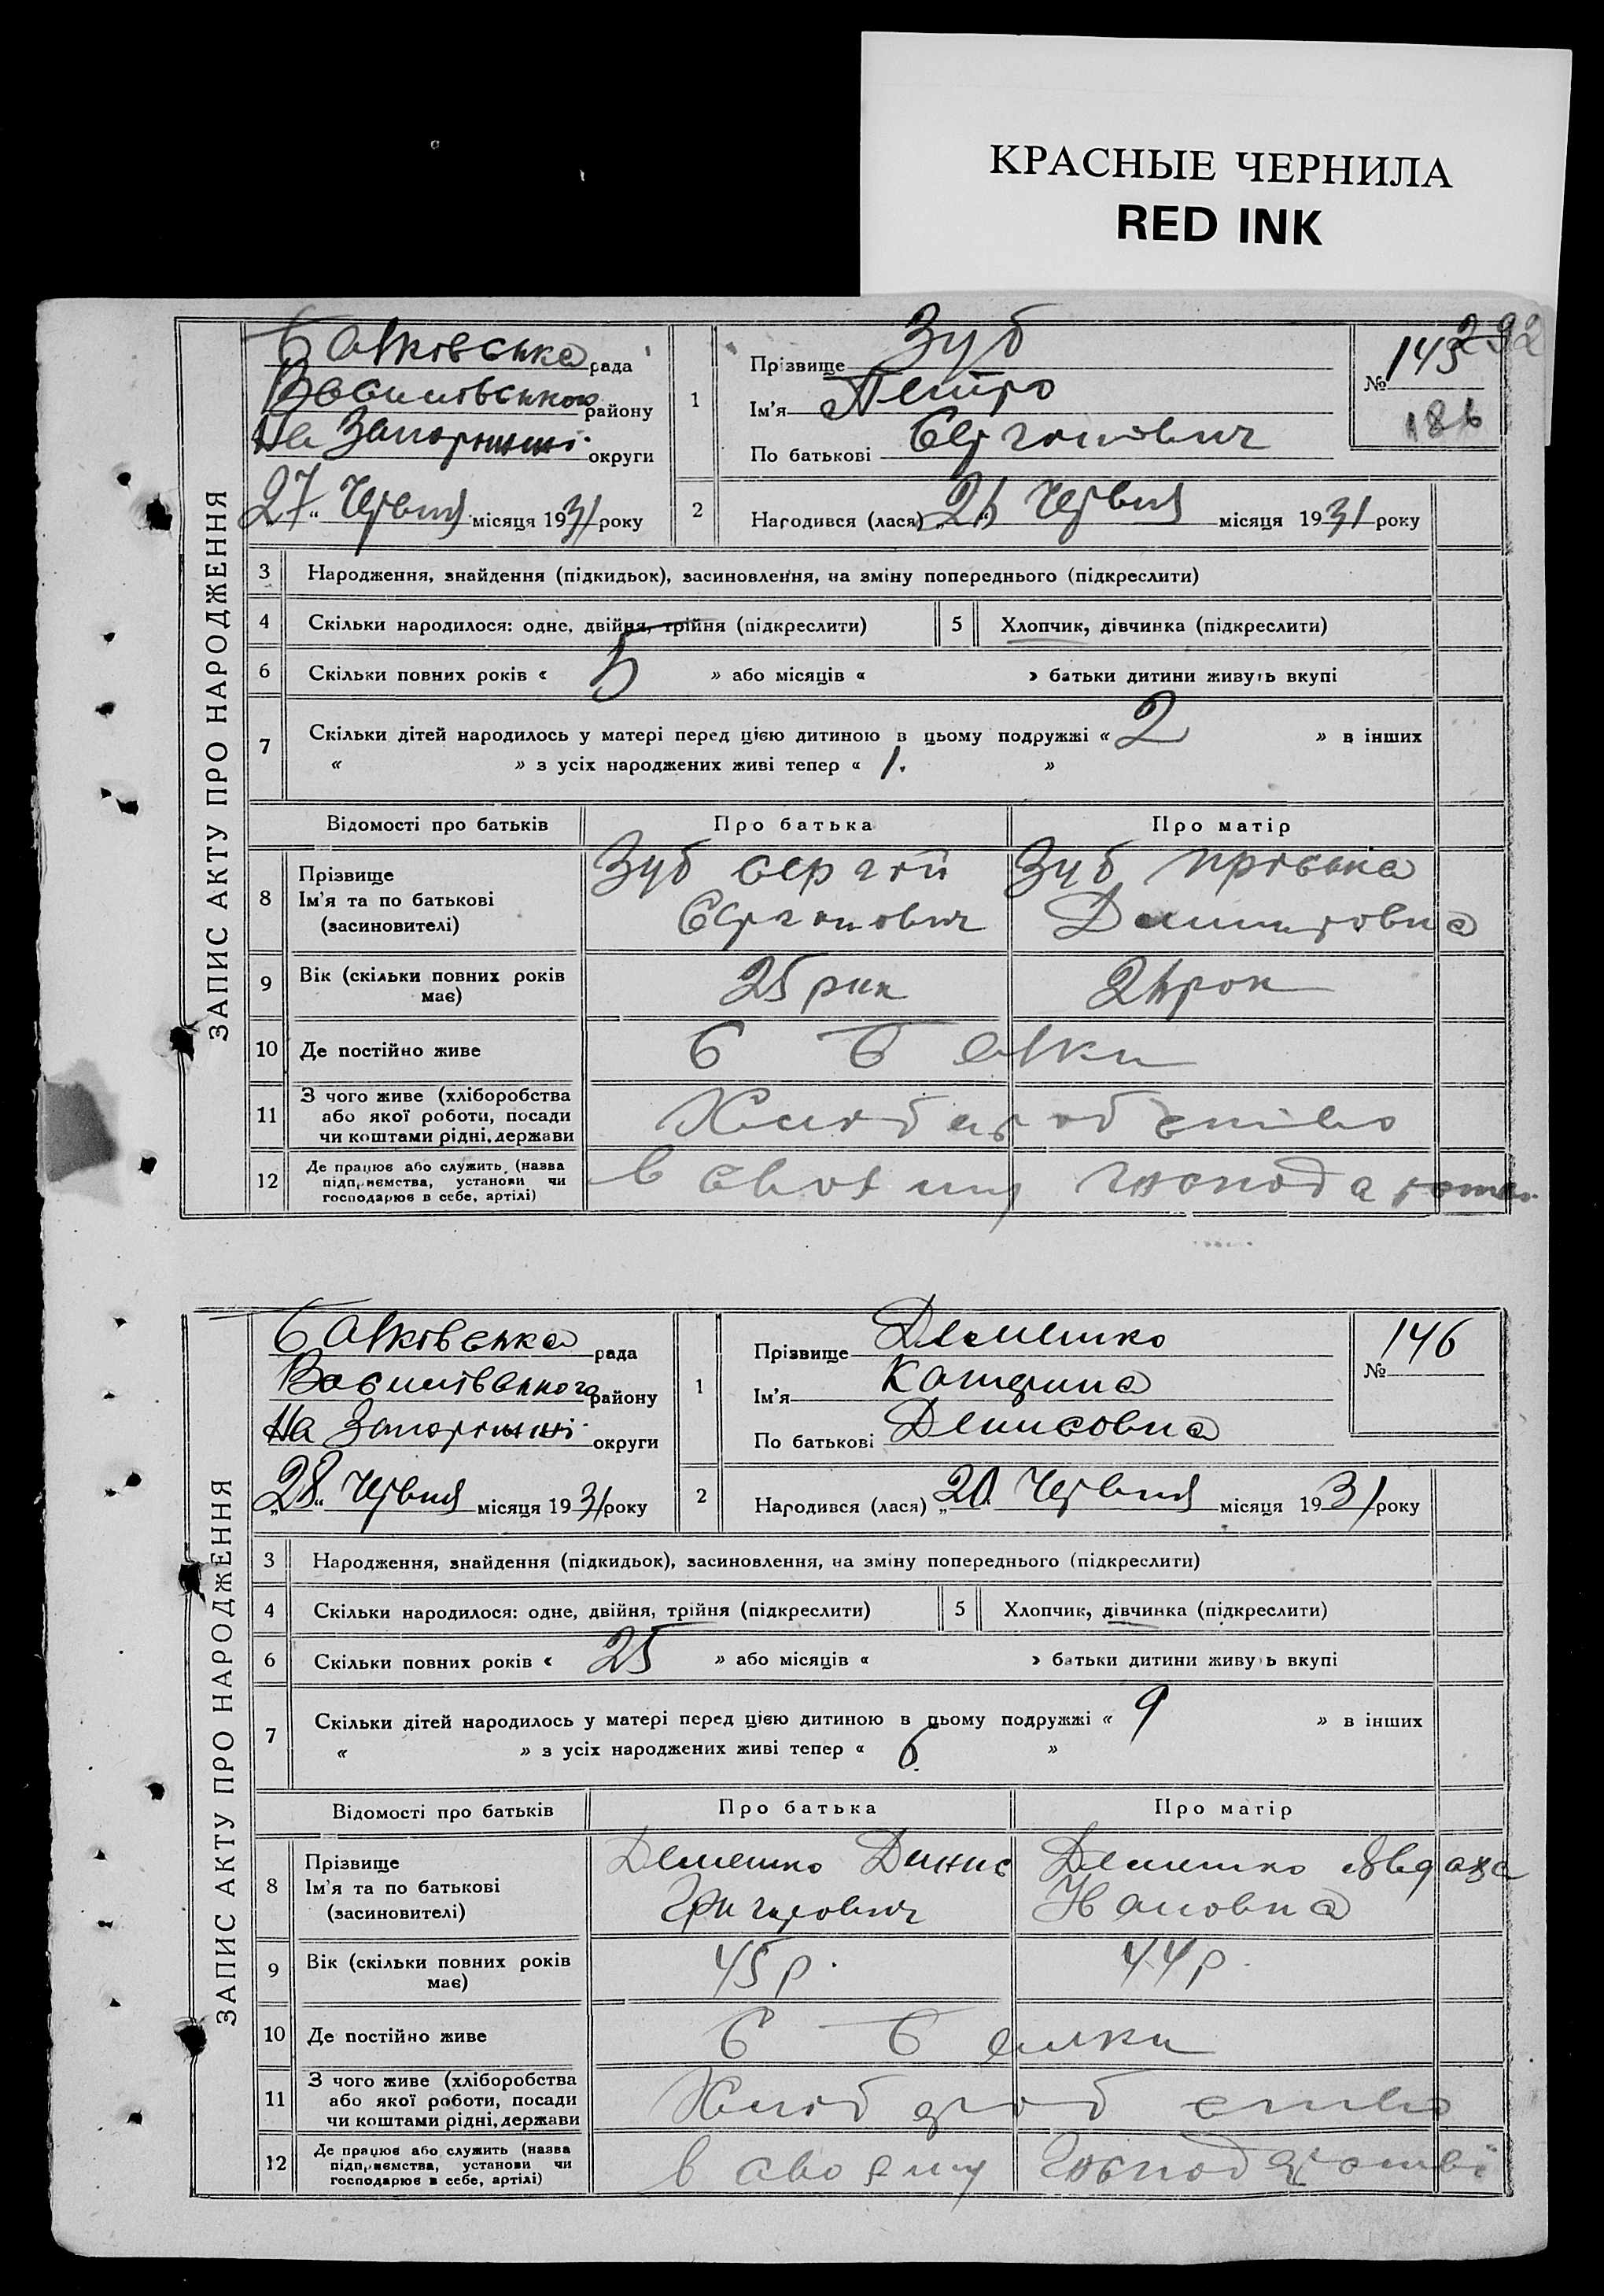 КРАСНЫЕ ЧЕРНИЛА
RED INK
292
ЗАПИС АКТУ ПРО НАРОДЖЕННЯ
Балківська рада
Василівського району
На Запоріжжі округи
„27“ Червня місяця 1931 року
1 Прізвище Зуб
Ім'я Петро
По батькові Сергійович
№ 145
186
2 Народився (лася) Червня місяця 1931 року
3 Народження, знайдення (підкидьок), засиновлення, на зміну попереднього (підкреслити)
4 Скільки народилося: одне, двійня, трійня (підкреслити) 5 Хлопчик, дівчинка (підкреслити)
6 Скільки повних років « 5 » або місяців « » батьки дитини живуть вкупі
7 Скільки дітей народилось у матері перед цією дитиною в цьому подружжі « 2 » в інших
« » з усіх народжених живі тепер « 1. »
Відомості про батьків Про батька Про матір
8 Прізвище
Ім'я та по батькові
(засиновителі)
Зуб Сергій
Сергійович
Зуб Пріська
Дмитровна
9 Вік (скільки повних років
має)
25 рик
рок
10 Де постійно живе С Балки
11 З чого живе (хліборобства
або якої роботи, посади
чи коштами рідні, держави
Хліборобство
12 Де працює або служить (назва
підприємства, установи чи
господарює в себе, артілі)
в своєму господарстві
ЗАПИС АКТУ ПРО НАРОДЖЕННЯ
Балківська рада
Василівського району
На Запоріжжі округи
„28“ Червня місяця 1931 року
1 Прізвище Демешко
Ім'я Катерина
По батькові Денисовна
№ 146
2 Народився (лася) „20. Червня місяця 1931 року
3 Народження, знайдення (підкидьок), засиновлення, на зміну попереднього (підкреслити)
4 Скільки народилося: одне, двійня, трійня (підкреслити) 5 Хлопчик, дівчинка (підкреслити)
6 Скільки повних років « 25 » або місяців « » батьки дитини живуть вкупі
7 Скільки дітей народилось у матері перед цією дитиною в цьому подружжі « 9 » в інших
« » з усіх народжених живі тепер « 6. »
Відомості про батьків Про батька Про матір
8 Прізвище
Ім'я та по батькові
(засиновителі)
Демешко Динис
Григорович
Демешко Явдоха
9 Вік (скільки повних років
має)
45 р.
44 р.
10 Де постійно живе С Балки
11 З чого живе (хліборобства
або якої роботи, посади
чи коштами рідні, держави
Хліборобство
12 Де працює або служить (назва
підприємства, установи чи
господарює в себе, артілі)
в своєму господарстві